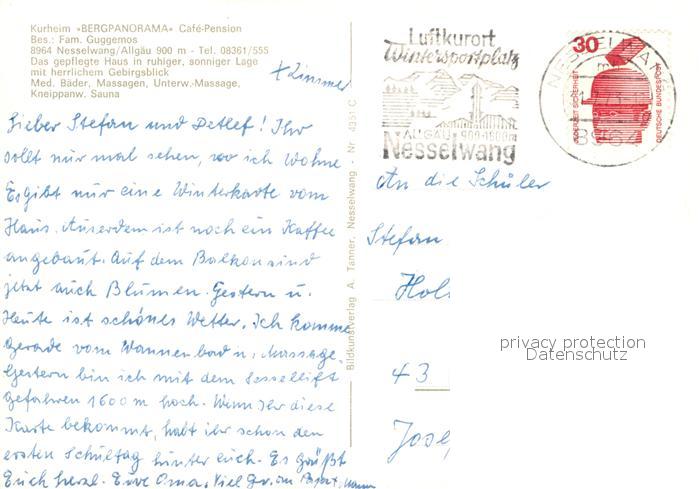 Kurheim »BERGPANORAMA« Café-Pension
Bes.: Fam. Guggemos
8964 Nesselwang/Allgäu 900 m - Tel. 08361/555
Das gepflegte Haus in ruhiger, sonniger Lage
mit herrlichem Gebirgsblick
Med. Bäder, Massagen, Unterw.-Massage,
Kneippanw. Sauna
x Zimmer
Lieber Stefan und Detlef! Ihr
sollt nur mal sehen, wo ich wohne
Es gibt nur eine Winterkarte vom
Haus. Auserdem ist noch ein Kaffee
angebaut. Auf dem Balkon sind
jetzt auch Blumen. Gestern u.
Heute ist schönes Wetter. Ich komme
gerade vom Wannenbad u. Massage.
Gestern bin ich mit dem Sessellift
gefahren 1600 m hoch. Wenn Ihr diese
Karte bekommt, habt ihr schon den
ersten Schultag hinter euch. Es grüßt
Euch herzl. Eure Oma, Viel Gr. an
Bildkunstverlag A. Tanner, Nesselwang - Nr. 4351 C
Luftkurort
Wintersportplatz
ALLGÄU 900-1600m
Nesselwang
NESSELWANG
8964
30
JEDERZEIT SICHERHEIT
DEUTSCHE BUNDESPOST
An die Schüler
Stefan
43
privacy protection
Datenschutz